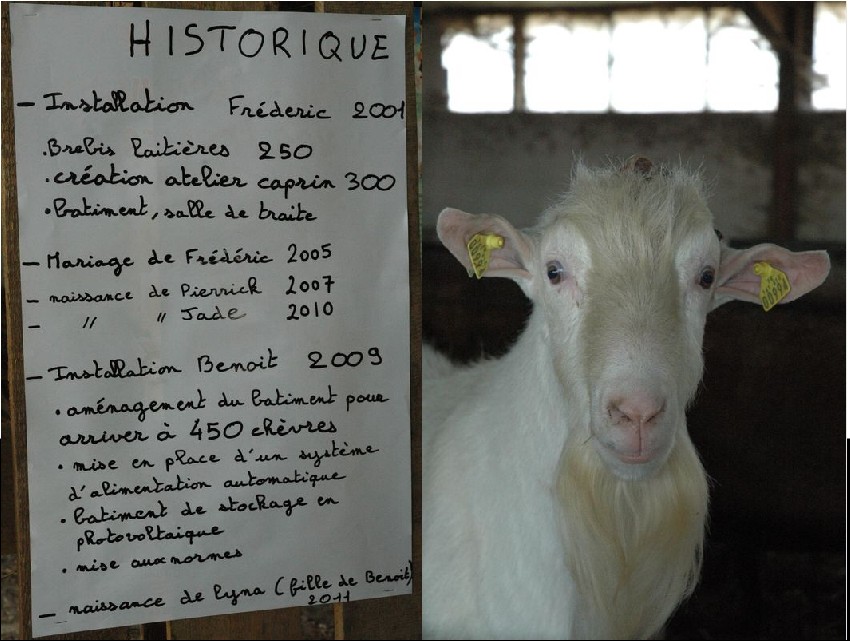 HISTORIQUE
- Installation Fréderic 2001
. Brebis laitières 250
. création atelier caprin 300
. batiment, salle de traite
- Mariage de Frédéric 2005
- naissance de Pierrick 2007
- " " Jade 2010
- Installation Benoit 2009
. aménagement du batiment pour
arriver à 450 chèvres
. mise en place d'un système
d'alimentation automatique
. batiment de stockage en
photovoltaique
. mise aux normes
- naissance de Lyna (fille de Benoit)
2011